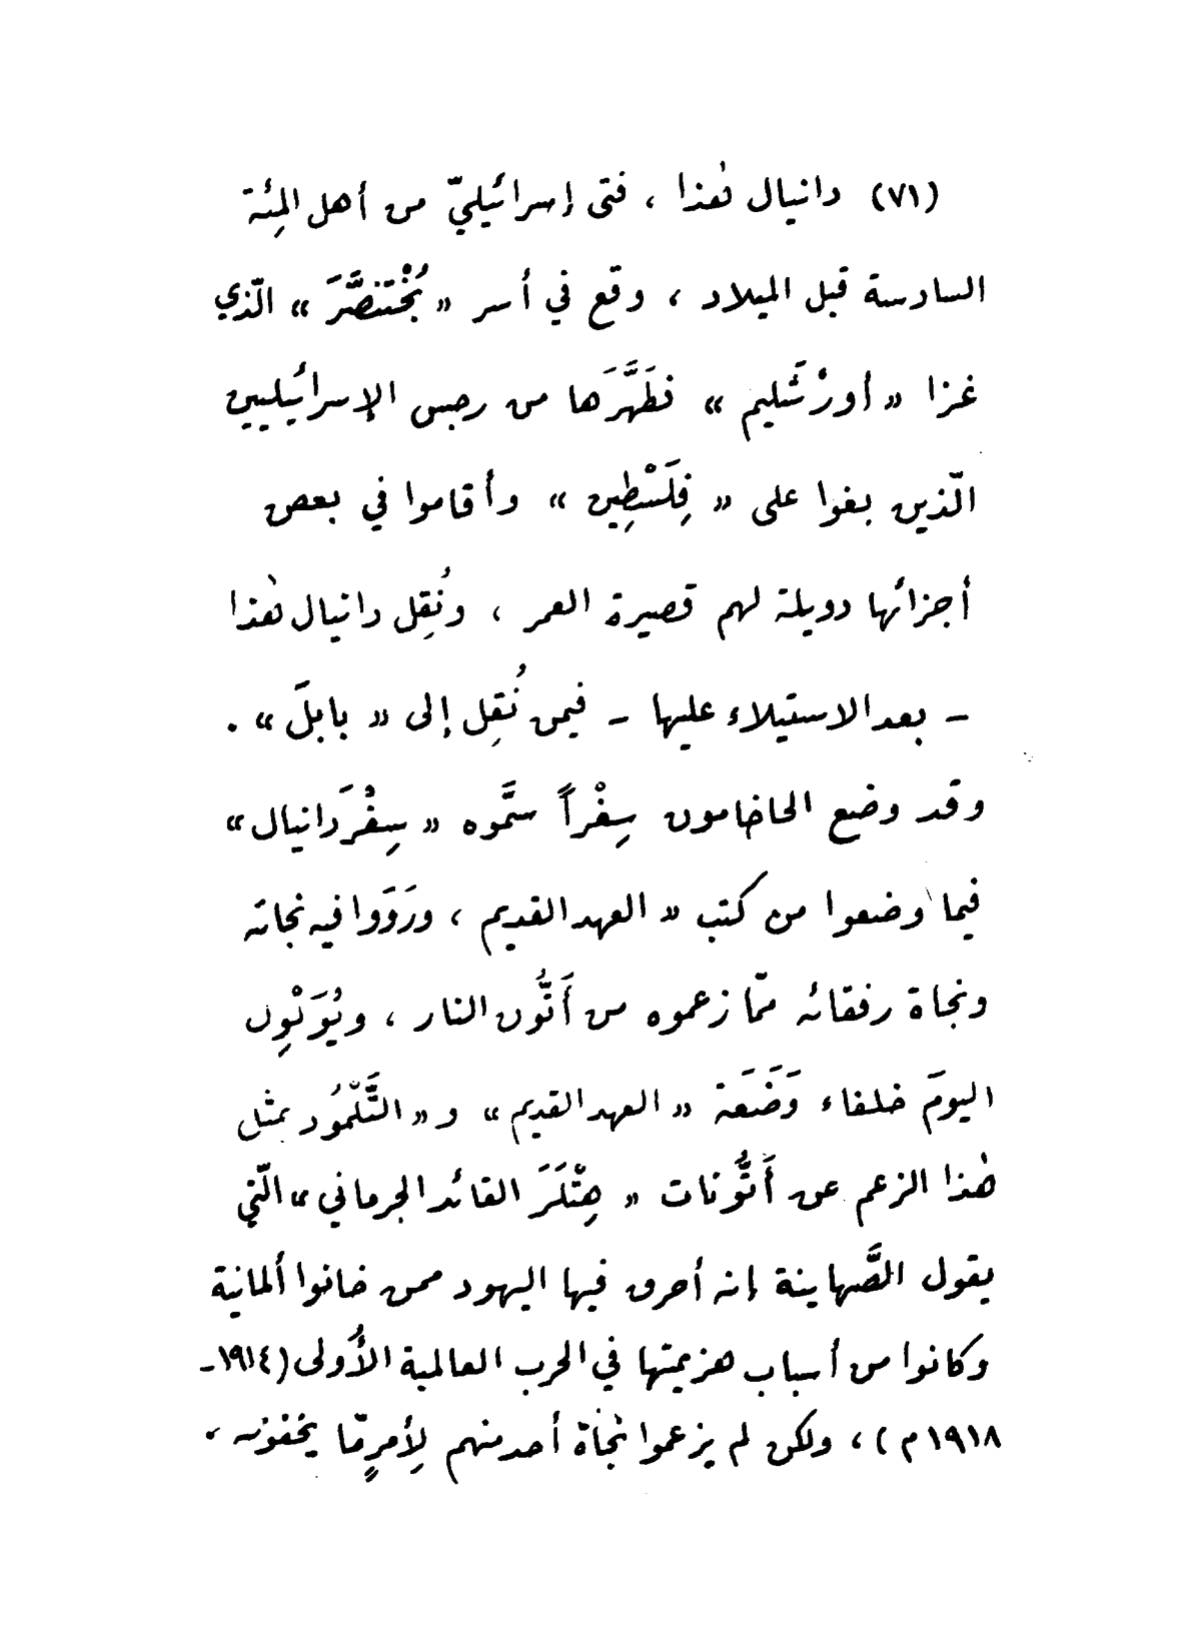 (٧١) دانيال هٰذا ، فتى إسرائيليّ من أهل المِئة
السادسة قبل الميلاد ، وقع في أسر « بُخْتَنَصَّرَ » الّذي
غزا « أورْشَليم » فطَهَّرَها من رجس الإسرائيليين
الّذين بغوا على « فِلَسْطِين » وأقاموا في بعض
أجزائها دويلة لهم قصيرة العمر ، ونُقِل دانيال هٰذا
- بعد الاستيلاء عليها - فيمن نُقِل إلى « بابلَ » .
وقد وضع الحاخامون سِفْراً سَمَّوه « سِفْرَ دانيال »
فيما وضعوا من كتب « العهد القديم ، ورَوَوا فيه نجاته
ونجاة رفقائه ممّا زعموه من أَتُّون النار ، ويُوَلْوِل
اليومَ خلفاء وَضَعَة « العهد القديم » و « التَّلْمُود بمثل
هٰذا الزعم عن أَتُّونات « هِتْلَرَ القائد الجرماني » الّتي
يقول الصَّهاينة إنه أحرق فيها اليهود ممن خانوا ألمانية
وكانوا من أسباب هزيمتها في الحرب العالمية الأُولى (١٩١٤-
١٩١٨م) ، ولكن لم يزعموا نجاة أحد منهم لِأمرٍ مّا يخفونه ،